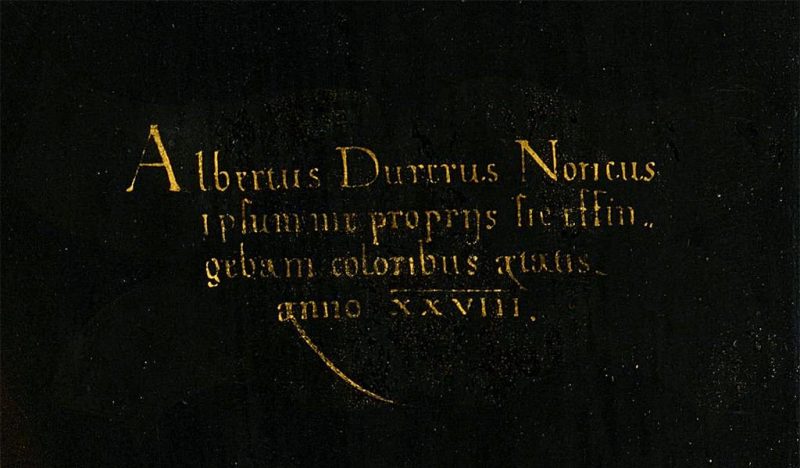 Albertus Durerus Noricus
ipsum me proprijs sic effin„
gebam coloribus ætatis.
anno XXVIII.